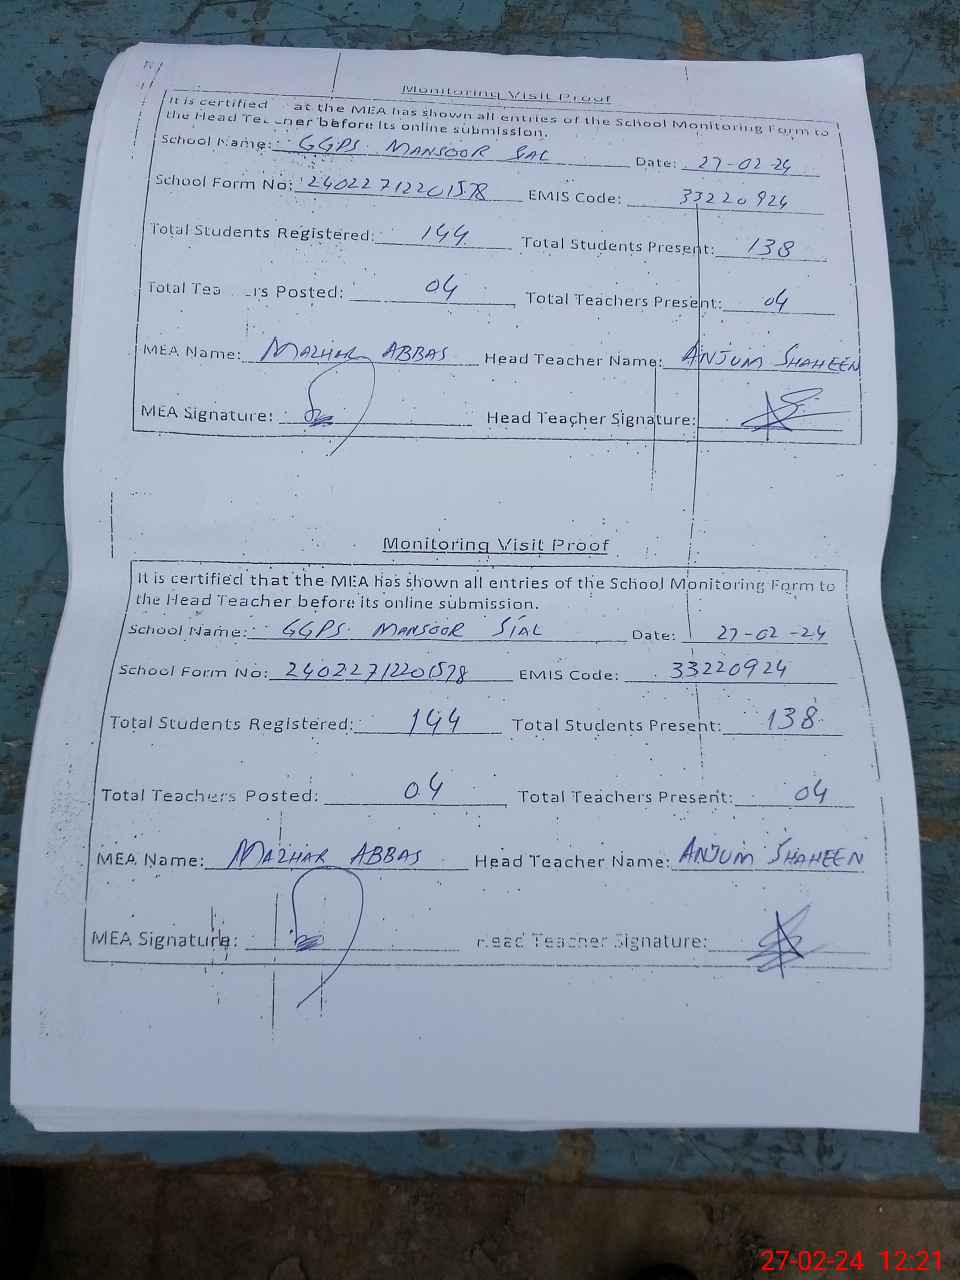 Monitoring Visit Proof
It is certified at the MEA has shown all entries of the School Monitoring Form to
the Head Teacher before its online submission.
School Name: GGPS. MANSOOR SAL Date: 27-02-24
School Form No: 24022712201578 EMIS Code: 33220924
Total Students Registered: 144 Total Students Present: 138
Total Tea rs Posted: 04 Total Teachers Present: 04
MEA Name: MAZHAR ABBAS Head Teacher Name: ANJUM SHAHEEN
MEA Signature: Head Teacher Signature:
Monitoring Visit Proof
It is certified that the MEA has shown all entries of the School Monitoring Form to
the Head Teacher before its online submission.
School Name: GGPS. MANSOOR SIAL Date: 27-02-24
School Form No: 24022712201578 EMIS Code: 33220924
Total Students Registered: 144 Total Students Present: 138
Total Teachers Posted: 04 Total Teachers Present: 04
MEA Name: MAZHAR ABBAS Head Teacher Name: ANJUM SHAHEEN
MEA Signature: Head Teacher Signature:
27-02-24 12:21